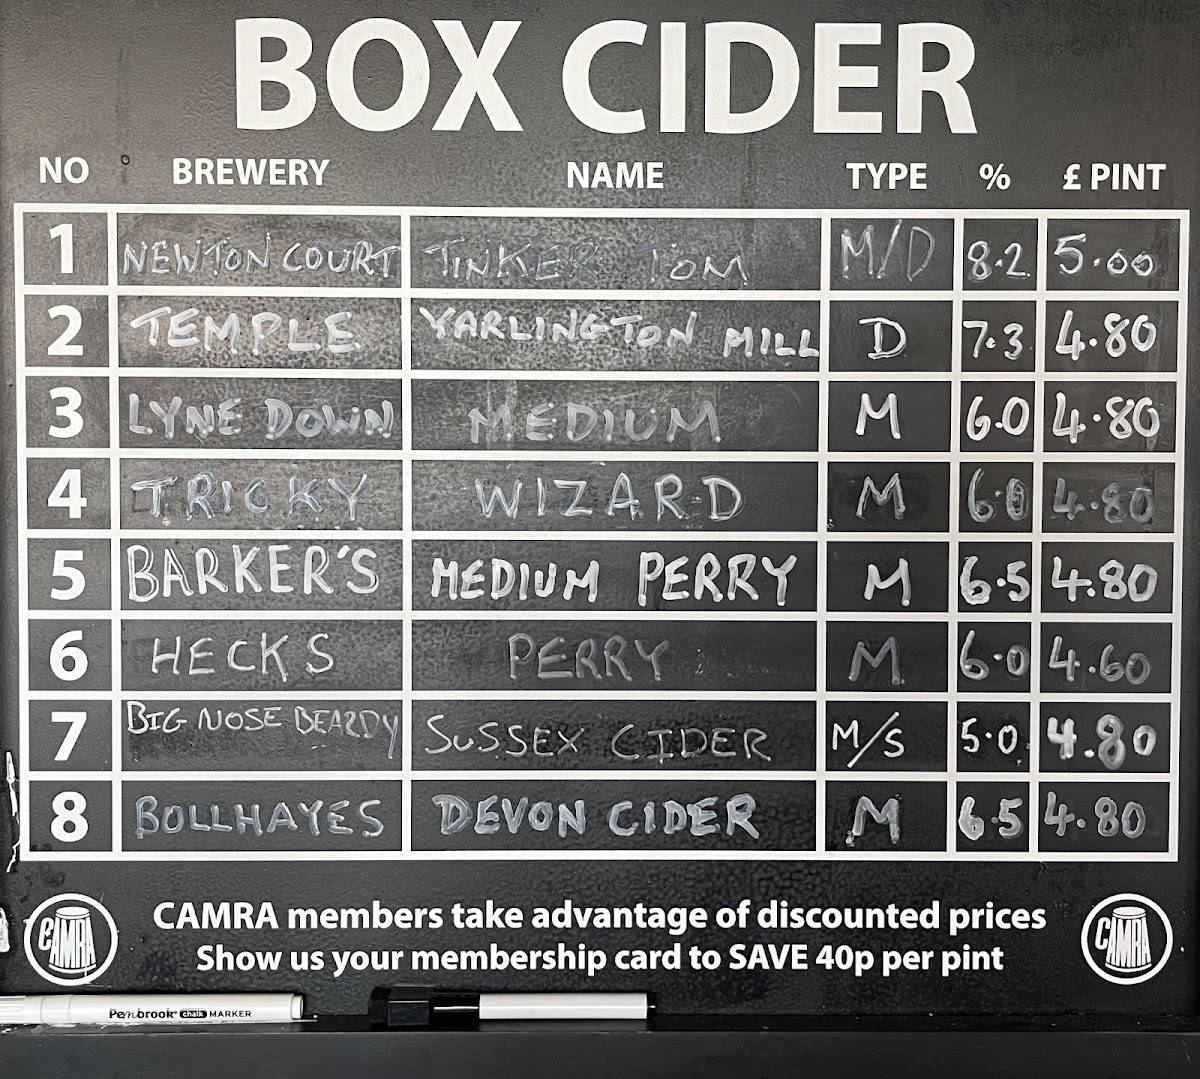 BOX CIDER
NO BREWERY NAME TYPE % £ PINT
1 NEWTON COURT TINKER TOM M/D 8.2 5.00
2 TEMPLE YARLINGTON MILL D 7.3 4.80
3 LYNE DOWN MEDIUM M 6.0 4.80
4 TRICKY WIZARD M 6.0 4.80
5 BARKER'S MEDIUM PERRY M 6.5 4.80
6 HECKS PERRY M 6.0 4.60
7 BIG NOSE BEARDY SUSSEX CIDER M/S 5.0 4.80
8 BOLLHAYES DEVON CIDER M 6.5 4.80
CAMRA members take advantage of discounted prices
Show us your membership card to SAVE 40p per pint
CAMRA
CAMRA
Penbrook® chalk MARKER